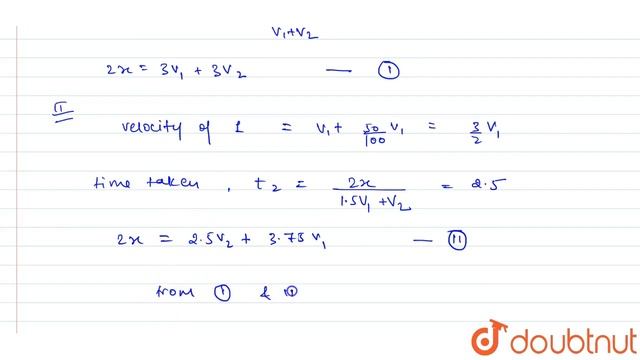 V₁+V₂
2x = 3V₁ + 3V₂ — ①
II
velocity of 1 = V₁ + 50/100 V₁ = 3/2 V₁
time taken, t₂ = 2x/1.5V₁+V₂ = 2.5
2x = 2.5V₂ + 3.75V₁ — ⑪
from ① & ⑪
doubtnut